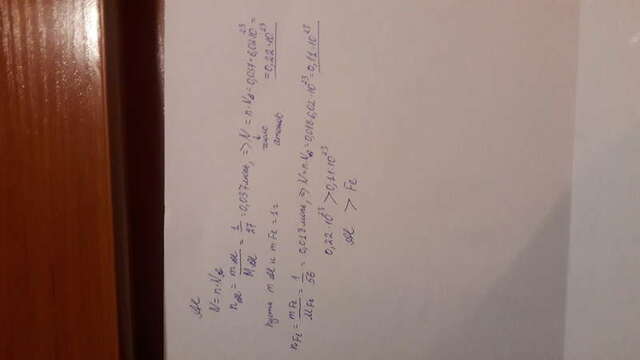 Al
N = n · Nₐ
n Al = m Al / M Al = 1/27 = 0,037 моль, => N = n · Nₐ = 0,037 · 6,02 · 10²³ =
число атомов
= 0,22 · 10²³
Пусть m Al и m Fe = 1г
n Fe = m Fe / M Fe = 1/56 = 0,018 моль, => N = n · Nₐ = 0,018 · 6,02 · 10²³ = 0,11 · 10²³
0,22 · 10²³ > 0,11 · 10²³
Al > Fe